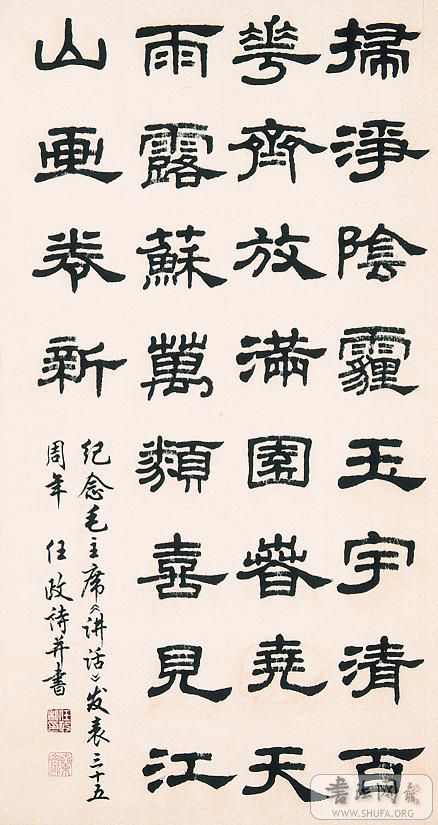 掃淨陰霾玉宇清百
華齊放滿園春堯天
雨露蘇萬類喜見江
山画卷新
纪念毛主席《讲话》发表三十五
周年 任政詩并書
WWW.SHUFA.ORG